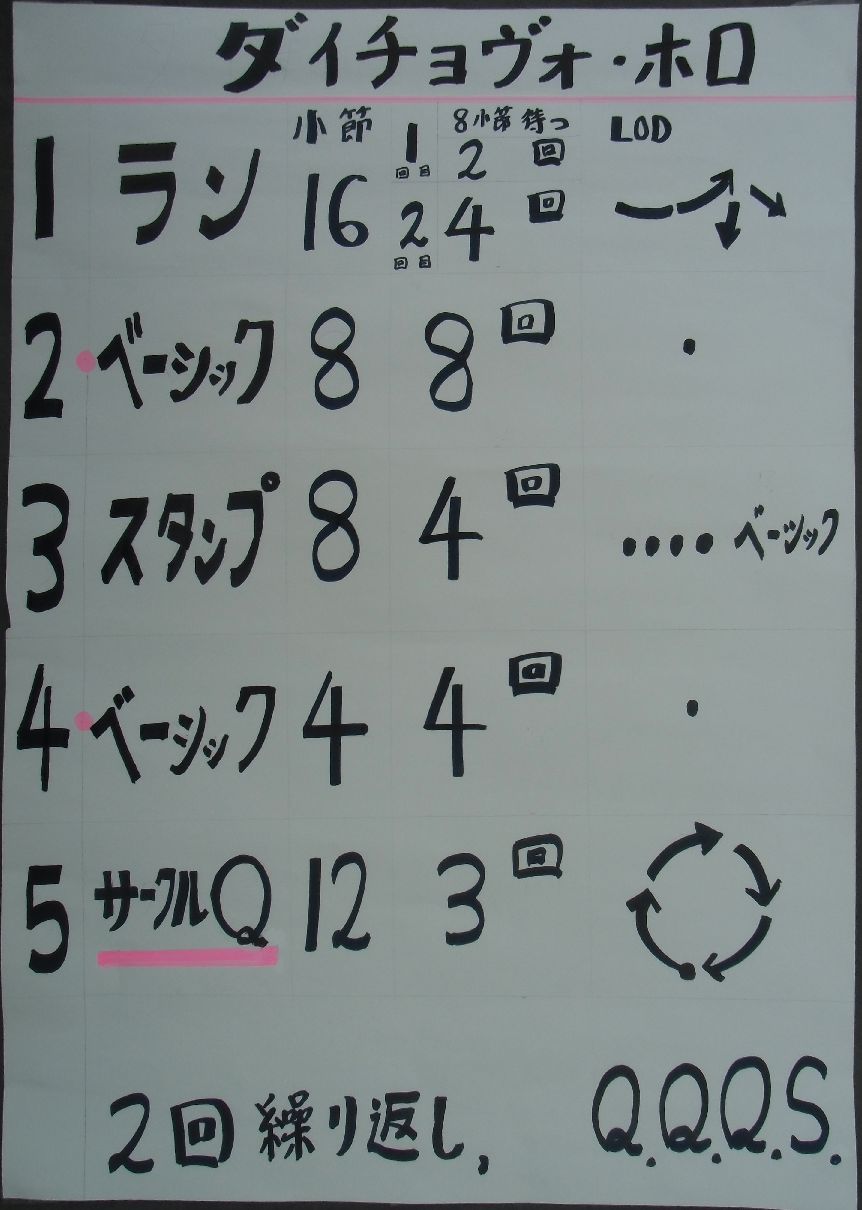 ダイチョヴォ・ホロ
小節 8小節待つ LOD
1 ラン 16 1回目 2回
2回目 4回
2 ベーシック 8 8回
3 スタンプ 8 4回 ベーシック
4 ベーシック 4 4回
5 サークルQ 12 3回
2回繰り返し, Q.Q.Q.S.